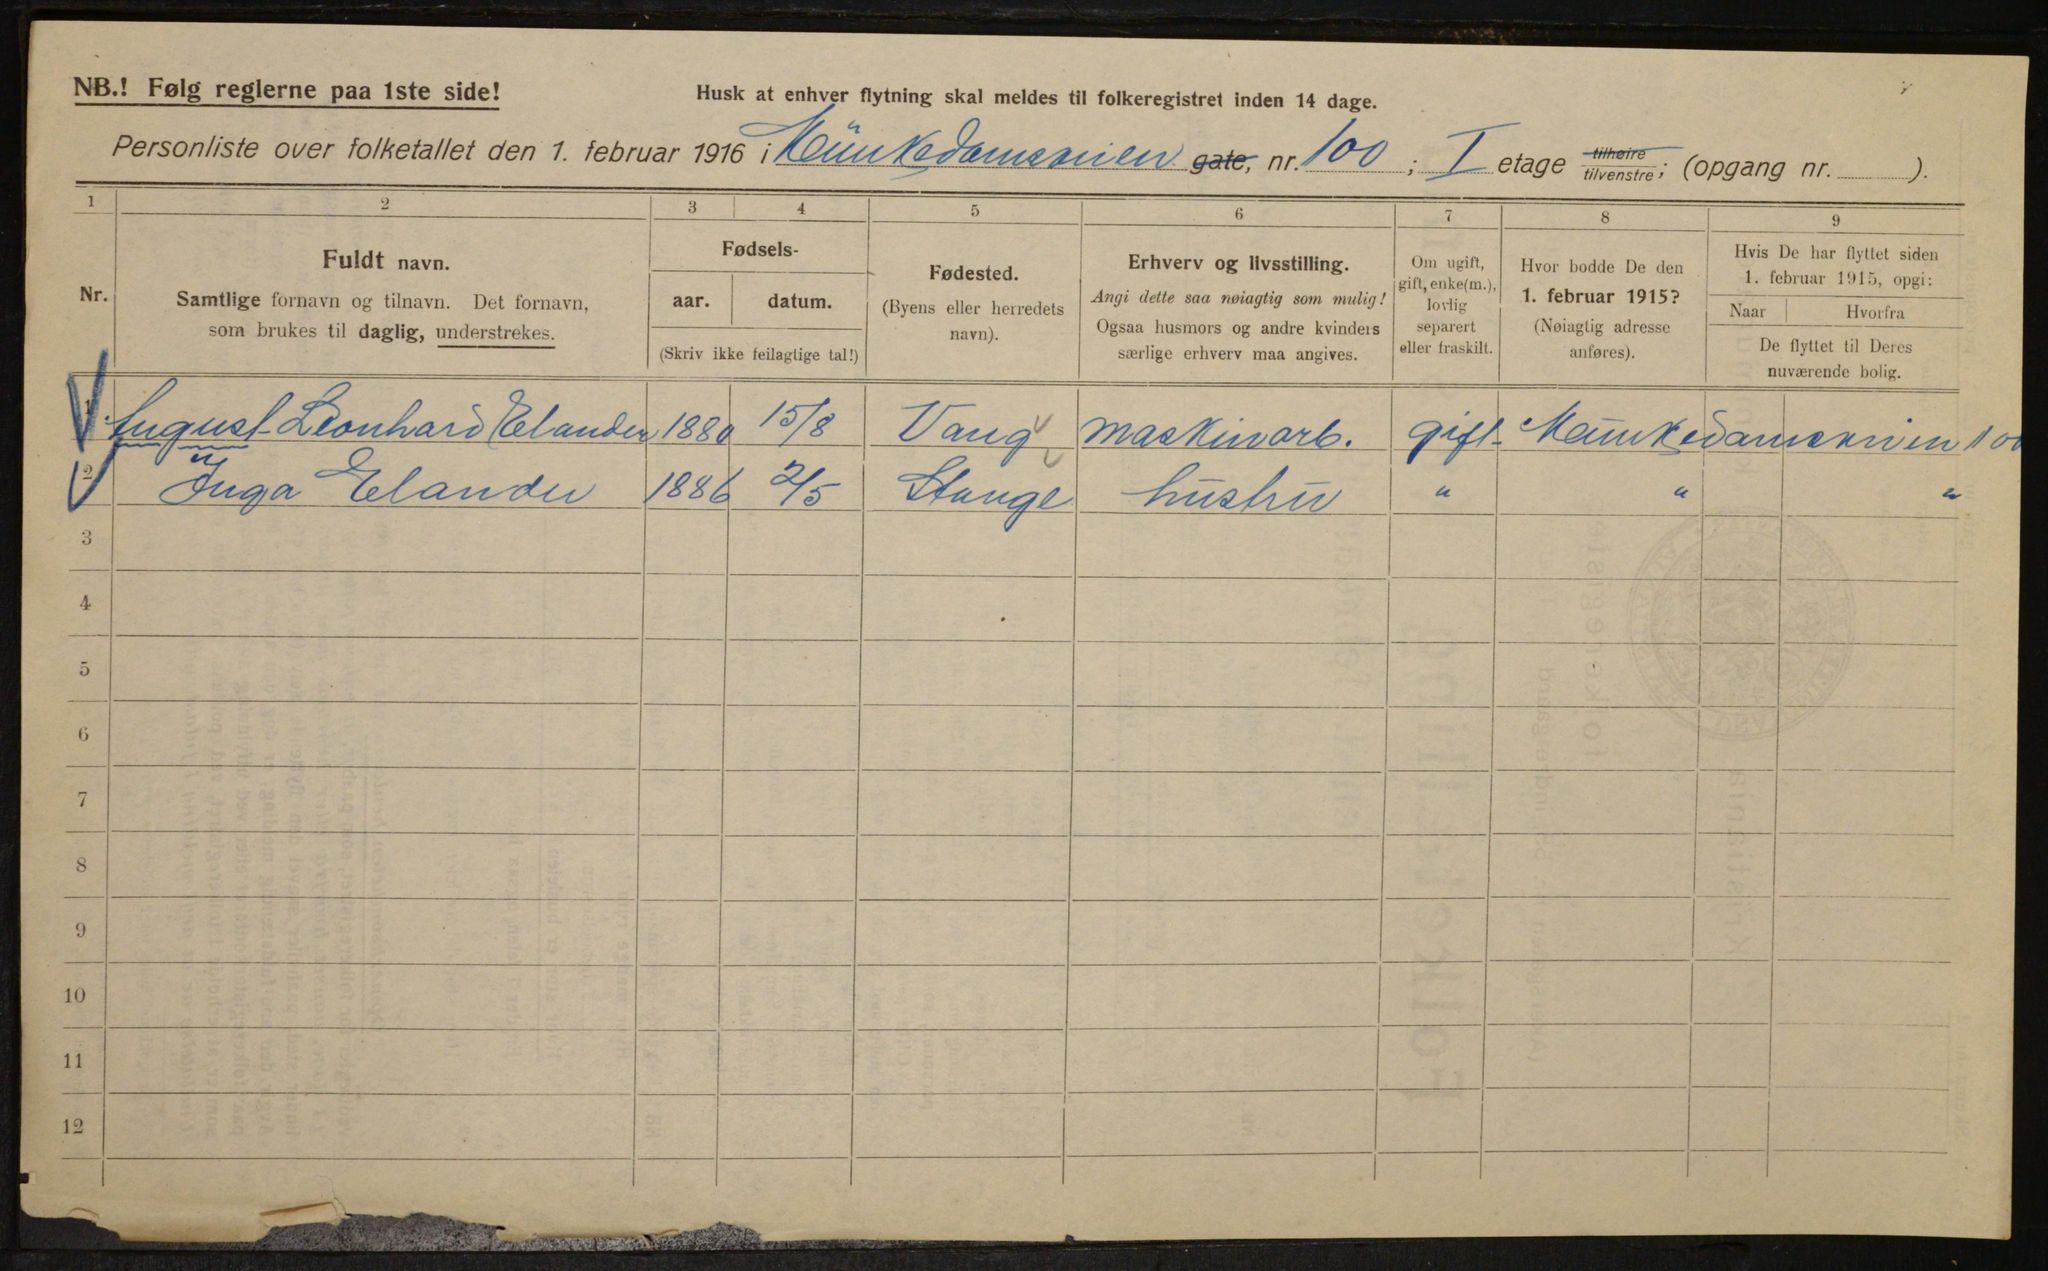 NB.! Følg reglerne paa 1ste side!
Husk at enhver flytning skal meldes til folkeregistret inden 14 dage.
Personliste over folketallet den 1. februar 1916 i Munkedamsveien gate, nr. 100 ; I etage tilhøire tilvenstre; (opgang nr. ).
1 2 3 4 5 6 7 8 9
Nr.
Fuldt navn.
Samtlige fornavn og tilnavn. Det fornavn,
som brukes til daglig, understrekes.
Fødsels-
aar. datum.
(Skriv ikke feilagtige tal!)
Fødested.
(Byens eller herredets
navn).
Erhverv og livsstilling.
Angi dette saa nøiagtig som mulig!
Ogsaa husmors og andre kvinders
særlige erhverv maa angives.
Om ugift,
gift, enke(m.),
lovlig
separert
eller fraskilt.
Hvor bodde De den
1. februar 1915?
(Nøiagtig adresse
anføres).
Hvis De har flyttet siden
1. februar 1915, opgi:
Naar Hvorfra
De flyttet til Deres
nuværende bolig.
1 August Leonhard Elander 1880 15/8 Vang maskinarb. gift Munkedamsveien 100
2 Inga Elander 1886 2/5 Stange hustru " " "
3
4
5
6
7
8
9
10
11
12